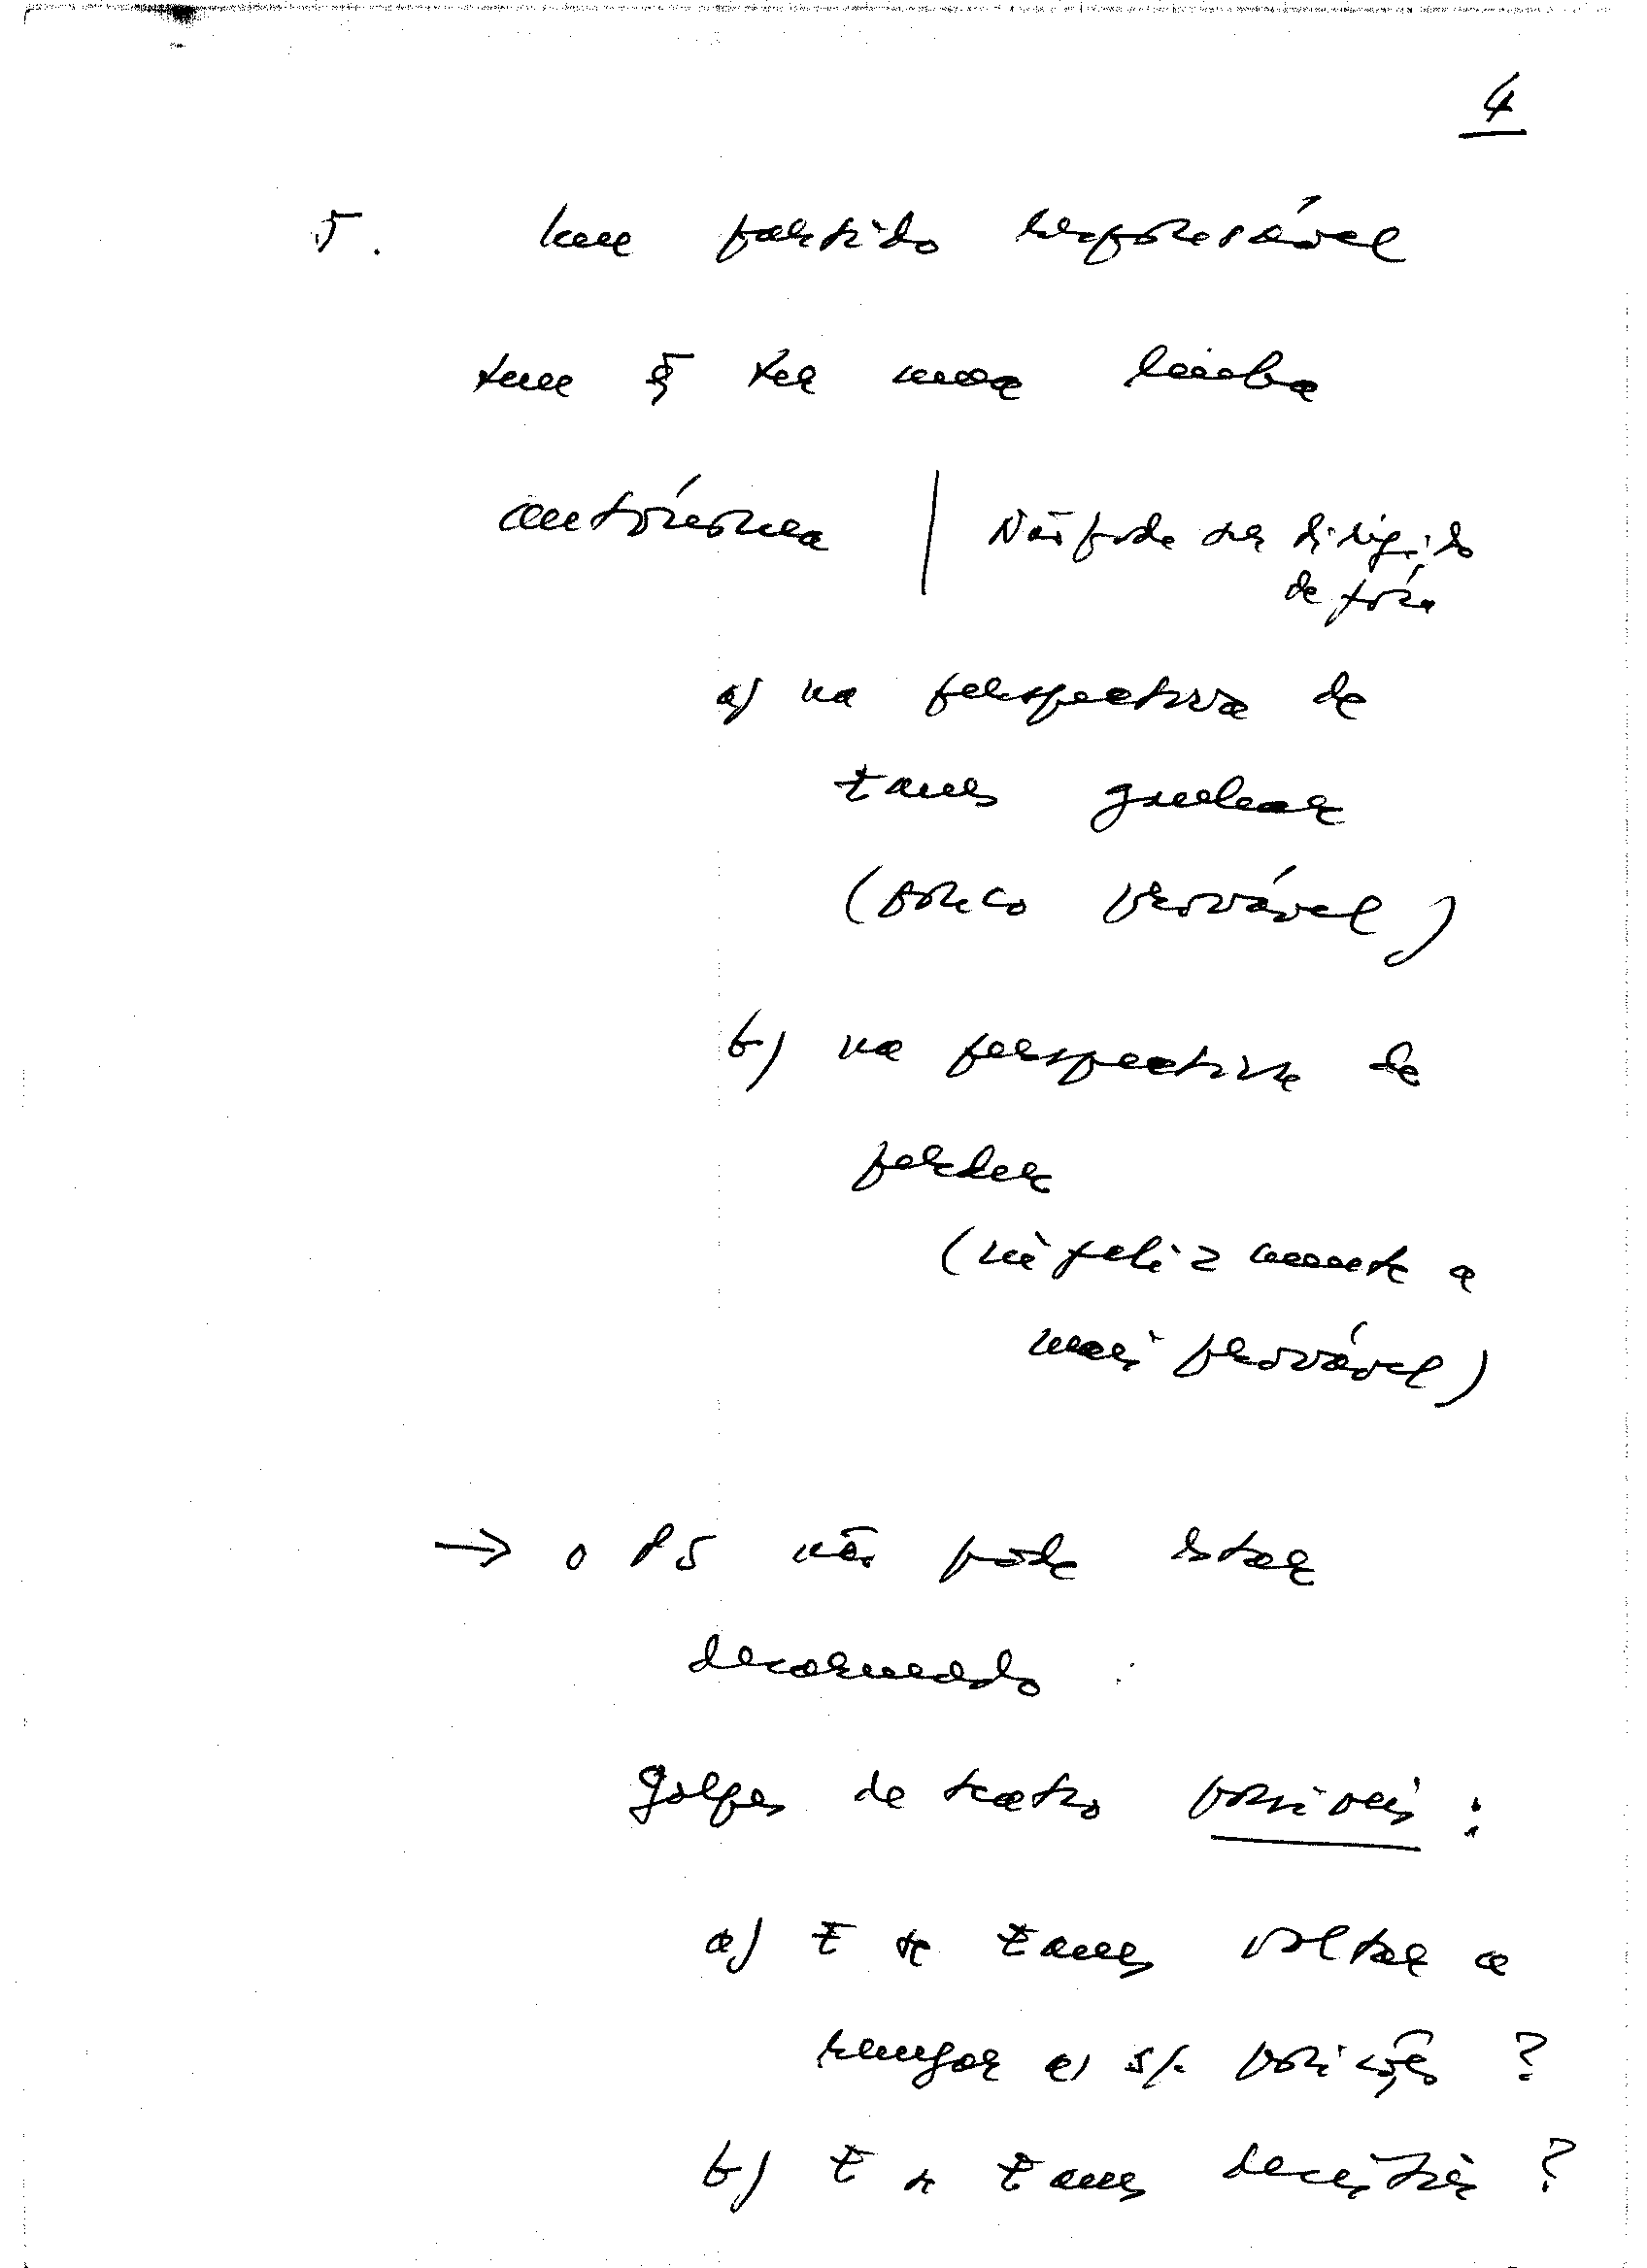 4
5. Um partido responsável
tem q ter uma linha
autónoma | Não pode ser dirigido
de fóra
a) na perspectiva de
Eanes ganhar
(pouco provável)
b) na perspectiva de
perder
(infelizmente a
mais provável)
→ o PS não pode estar
desarmado.
Golpes de teatro possíveis:
a) E se Eanes voltar a
a) s/. posições ?
b) E se Eanes desistir ?